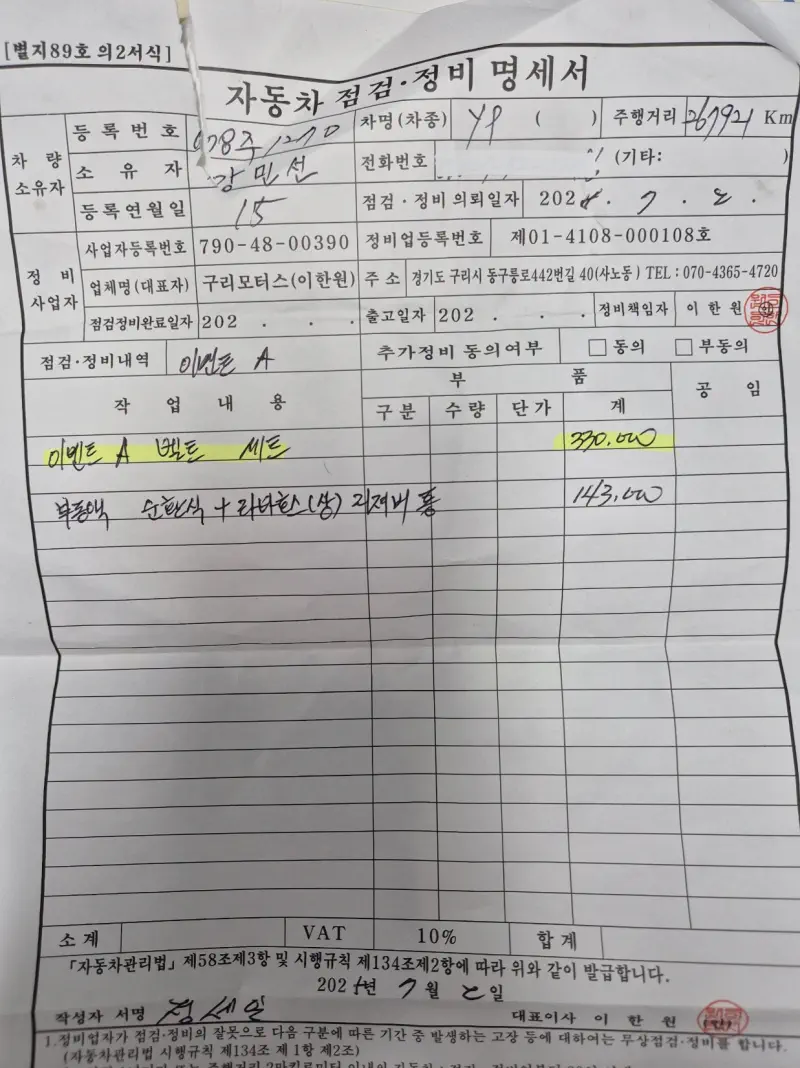 [별지89호 의2서식]
자동차 점검·정비 명세서
차 량 소유자
등 록 번 호 078주1270 차명(차종) YP ( ) 주행거리 267921 Km
소 유 자 강민선 전화번호 (기타: )
등록연월일 15 점검·정비 의뢰일자 202 . 7 . 2 .
정 비 사업자
사업자등록번호 790-48-00390 정비업등록번호 제01-4108-000108호
업체명(대표자) 구리모터스(이한원) 주 소 경기도 구리시 동구릉로442번길 40(사노동) TEL : 070-4365-4720
점검정비완료일자 202 . . . 출고일자 202 . . . 정비책임자 이 한 원
점검·정비내역 이벤트 A 추가정비 동의여부 □ 동의 □ 부동의
작 업 내 용 부 품 공 임
구 분 수 량 단 가 계
이벤트 A 벨트 세트 330.000
부동액 순환식 + 라디호스(상) 리저버 통 143.000
소 계 VAT 10% 합 계
「자동차관리법」 제58조제3항 및 시행규칙 제134조제2항에 따라 위와 같이 발급합니다.
202 년 7 월 2 일
작성자 서명 정세일 대표이사 이 한 원 (인)
1.정비업자가 점검·정비의 잘못으로 다음 구분에 따른 기간 중 발생하는 고장 등에 대하여는 무상점검·정비를 합니다.
(자동차관리법 시행규칙 제134조 제1항 제2조)